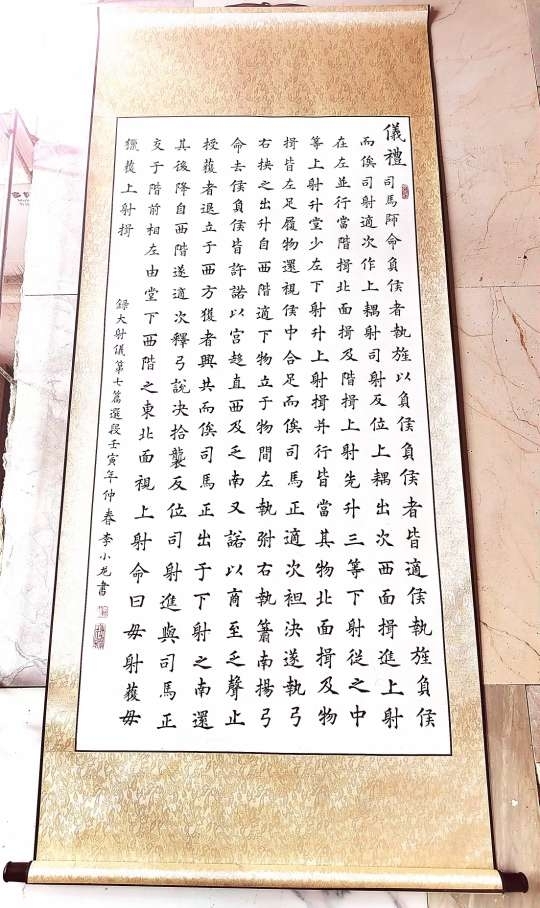 儀禮 司馬師命負侯者執旌以負侯負侯者皆適侯執旌負侯
而俟司射適次作上耦射司射反位上耦出次西面揖進上射
在左並行當階揖北面揖及階揖上射先升三等下射從之中
等上射升堂少左下射升上射揖并行皆當其物北面揖及物
揖皆左足履物還視侯中合足而俟司馬正適次袒決遂執弓
右挾之出升自西階適下物立于物間左執弣右執簫南揚弓
命去侯負侯皆許諾以宮趨直西及乏南又諾以商至乏聲止
授獲者退立于西方獲者興共而俟司馬正出于下射之南還
其後降自西階遂適次釋弓說決拾襲反位司射進與司馬正
交于階前相左由堂下西階之東北面視上射命曰毋射獲毋
獵獲上射揖
錄大射儀第七篇選段壬寅年仲春李小龙書